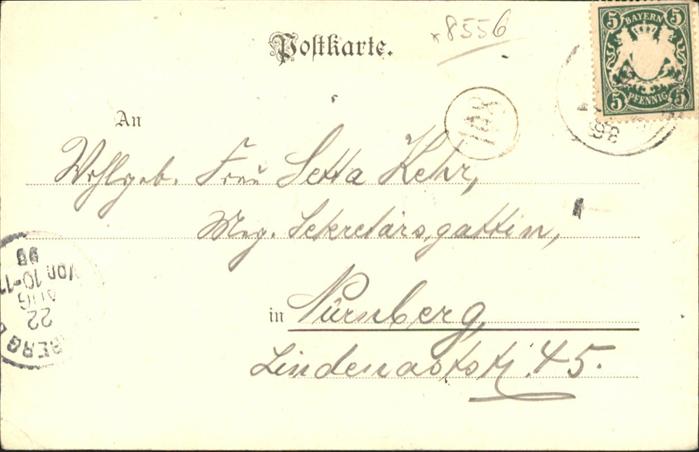 Postkarte.
*8556
5 BAYERN 5
5 PFENNIG 5
XVI
98
An
Wohlgeb. Frau Setta Kehr,
Mag. Sekretärsgattin,
in Nürnberg,
Lindenaststr. 45.
BERG
22
AUG
Von 10-11
98